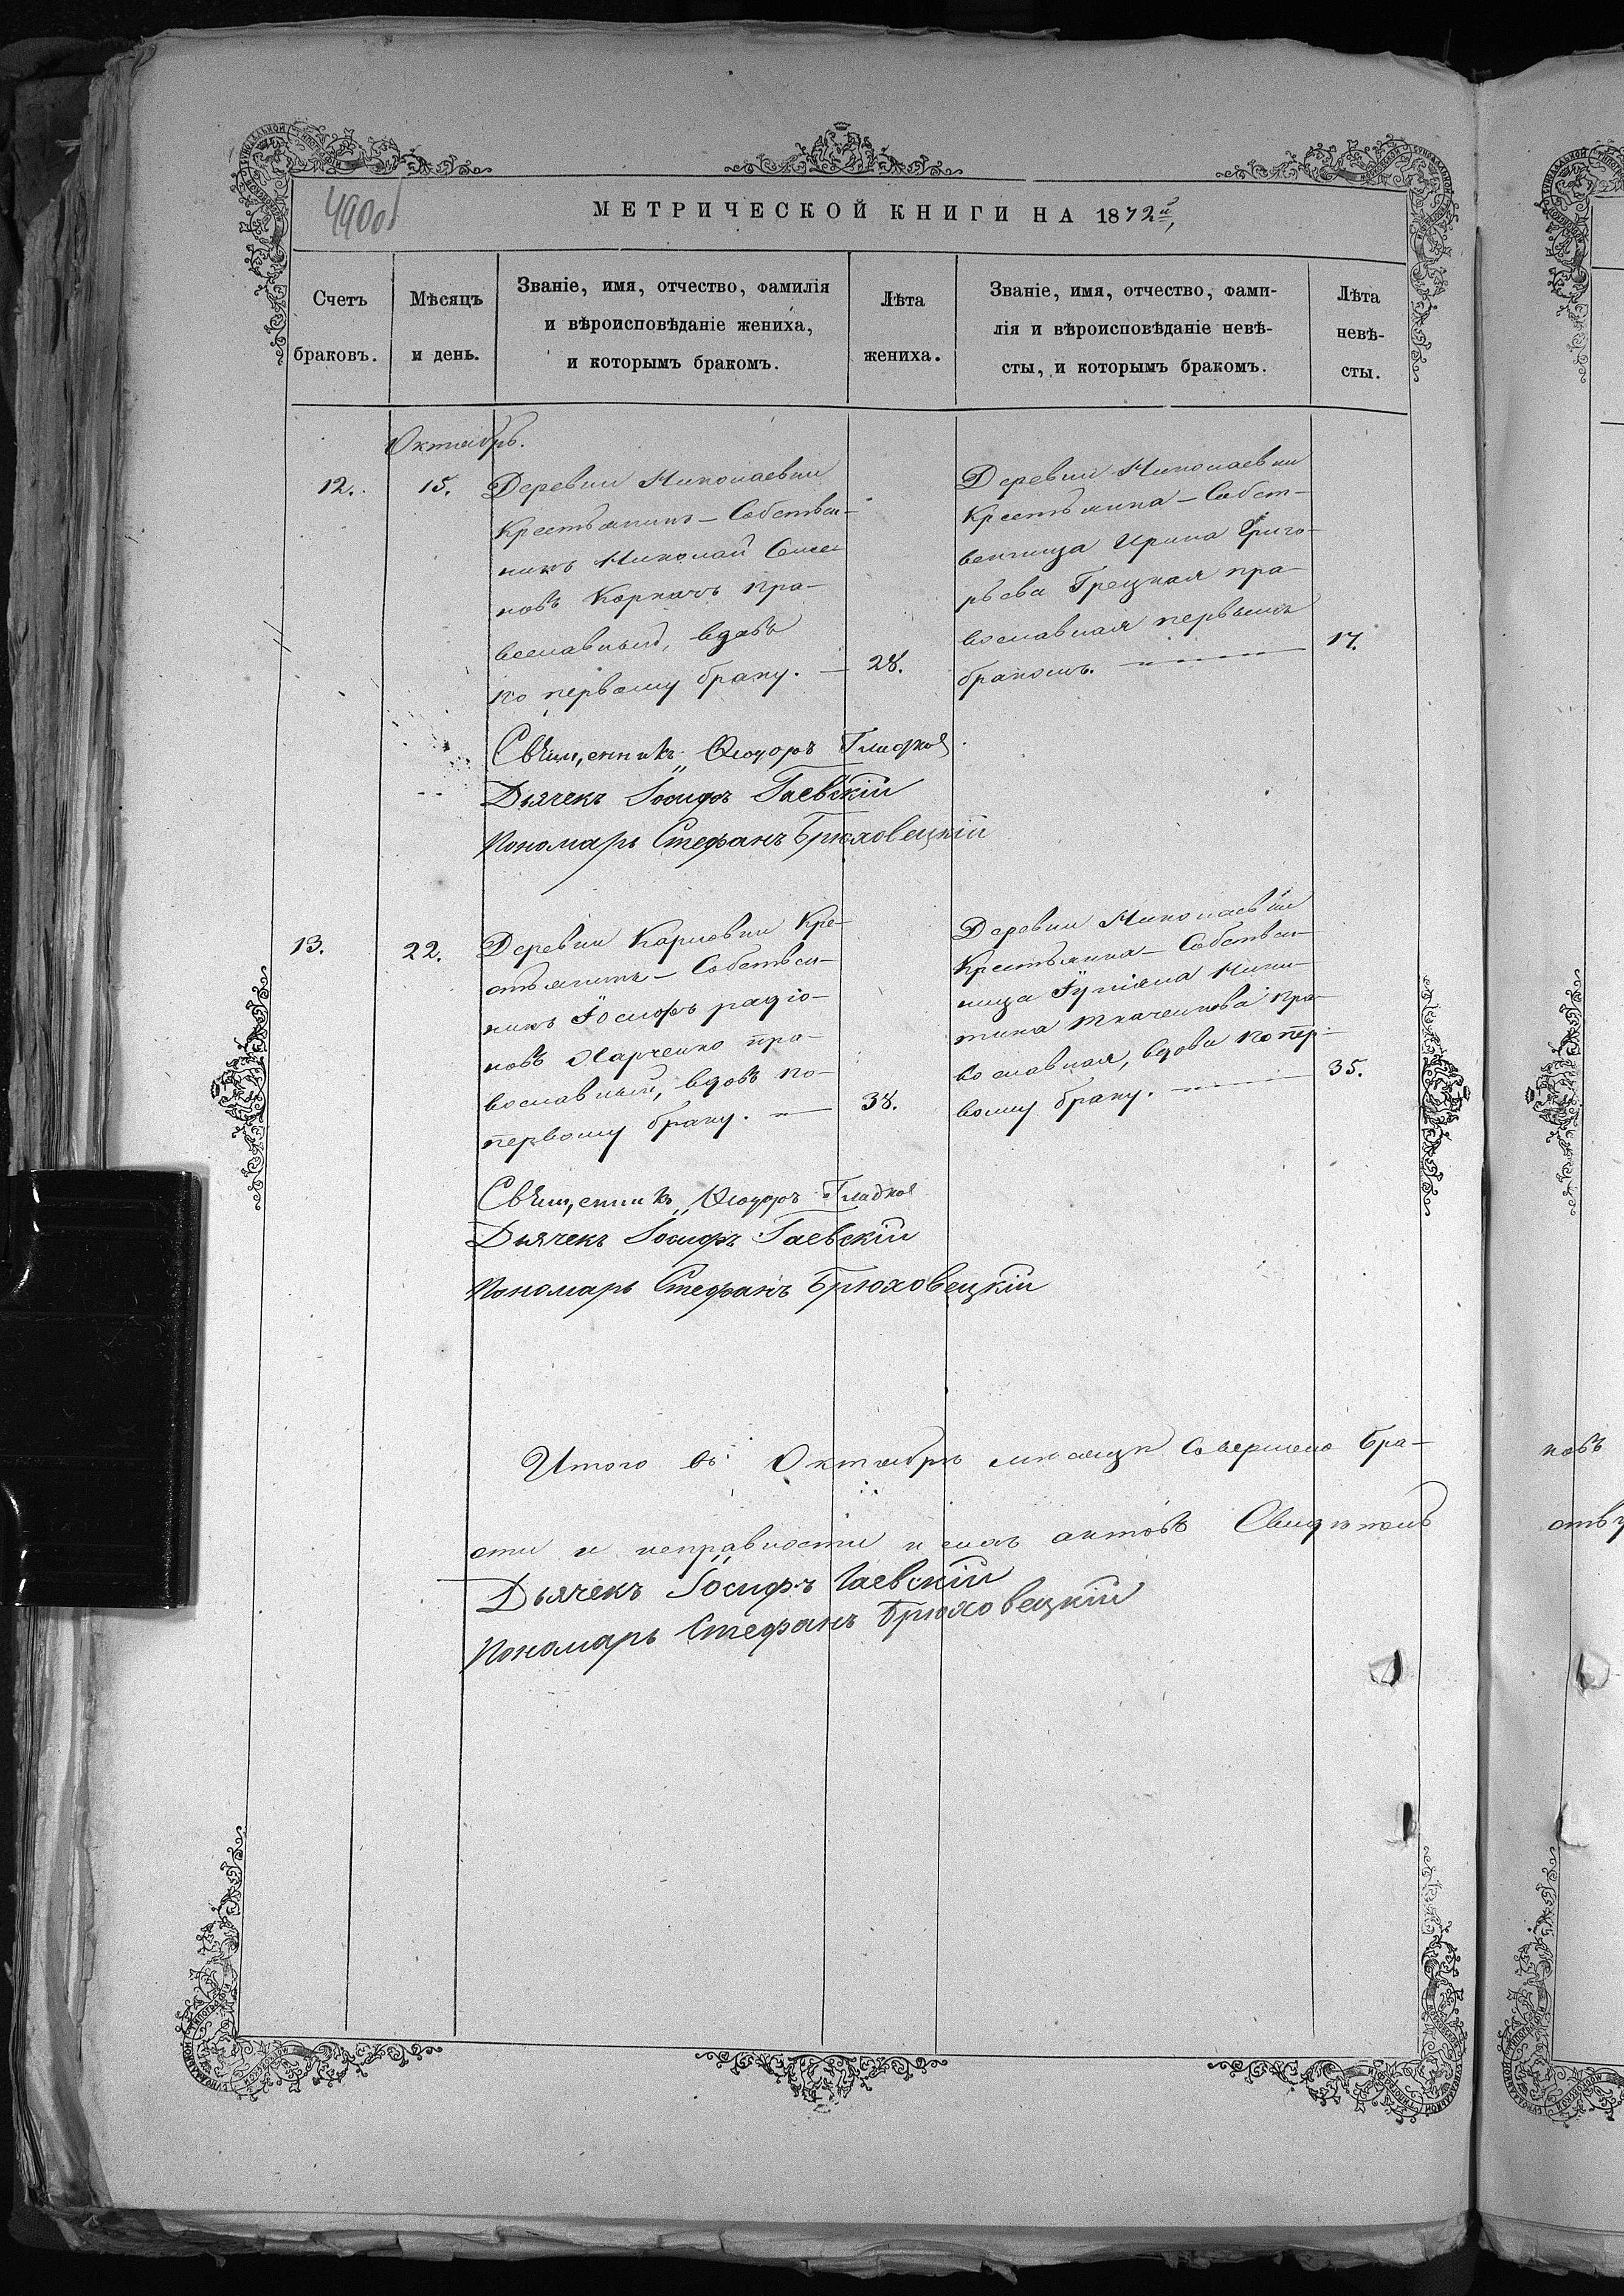 490об
МЕТРИЧЕСКОЙ КНИГИ НА 1872й,
Счетъ браковъ.
Мѣсяцъ и день.
Званіе, имя, отчество, фамилія
и вѣроисповѣданіе жениха,
и которымъ бракомъ.
Лѣта жениха.
Званіе, имя, отчество, фами-
лія и вѣроисповѣданіе невѣ-
сты, и которымъ бракомъ.
Лѣта невѣ-
сты.
Октябрь.
12. 15.
Деревни Николаевки
Крестьянинъ – Собствен-
никъ Николай Семе
новъ Коркачъ пра-
вославный, вдовъ
по первому браку. — 28.
Деревни Николаевки
Крестьянка – Собст-
венница Ирина Григо-
рьева Грецкая пра-
вославная первымъ
бракомъ. 17.
Священникъ Ѳеодоръ Гладкой
Дьячекъ Іосифъ Гаевскій
Пономарь Стефанъ Брюховецкій
13. 22.
Деревни Карловки Кре-
стьянинъ – Собствен-
никъ Іосифъ Радіо-
новъ Харченко пра-
вославный, вдовъ по
первому браку. — 38.
Деревни Николаевки
Крестьянка – Собствен-
ница Іуліана Ники-
тина Ткаченкова пра-
вославная, вдова по пер-
вому браку. 35.
Священникъ Ѳеодоръ Гладкой
Дьячекъ Іосифъ Гаевскій
Пономарь Стефанъ Брюховецкій
Итого въ Октябрѣ мѣсяцѣ совершено бра-
ковъ
сти и исправности сихъ актовъ Свидѣтель
ству
Дьячекъ Іосифъ Гаевскій
Пономарь Стефанъ Брюховецкій